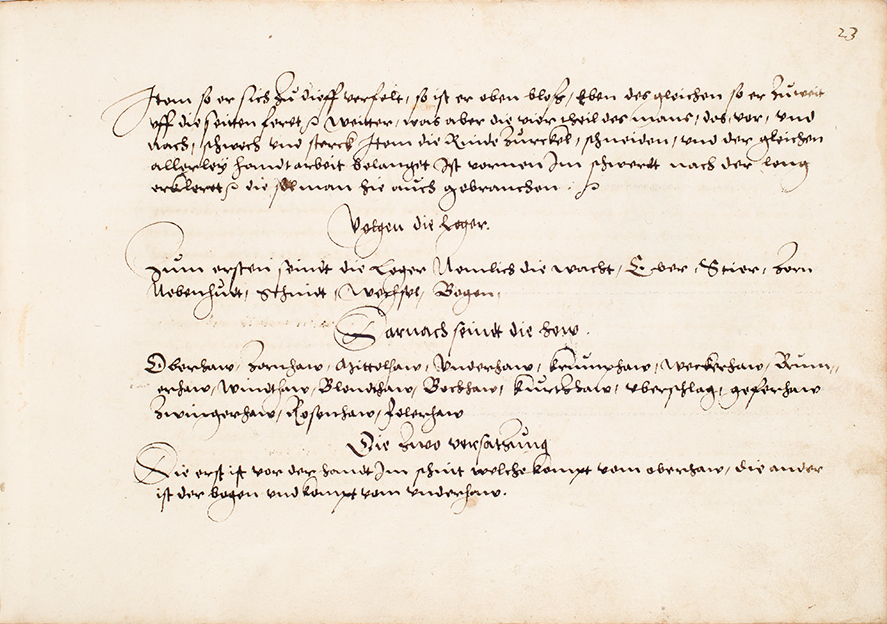 23
Item so er sich zu dieff verfelt, so ist er oben bloß, Eben des gleichen so er zu weit
uff die seitten feret Weitter, was aber die vier theil des mans, das vor, und
nach, schwech und sterck Item die Rinde zurckel, schneiden, und der gleichen
allerley handt arbeit belanget Ist vornen Im schwertt nach der leng
erkleret die sol man hie auch gebrauchen
Volgen die Leger.
Zum ersten seindt die Leger Nemlich die wacht, Eber, Stier, Zorn
Nebenhudt, Schnidt, Wechsel, Bogen,
Darnach seindt die hew.
Oberhaw, Zornhaw, Mittelhaw, Underhaw, krumphaw, Weckerhaw, Rum,,
erhaw, Windthaw, Blendthaw, Bochhaw, kurtzhaw, uberschlag, geferhaw
Zwingerhaw, Rosenhaw, Felerhaw
Die zwo versatzung
Die erst ist vor der handt Im schnit welche kompt vom oberhaw, die ander
ist der bogen und kompt vom underhaw.